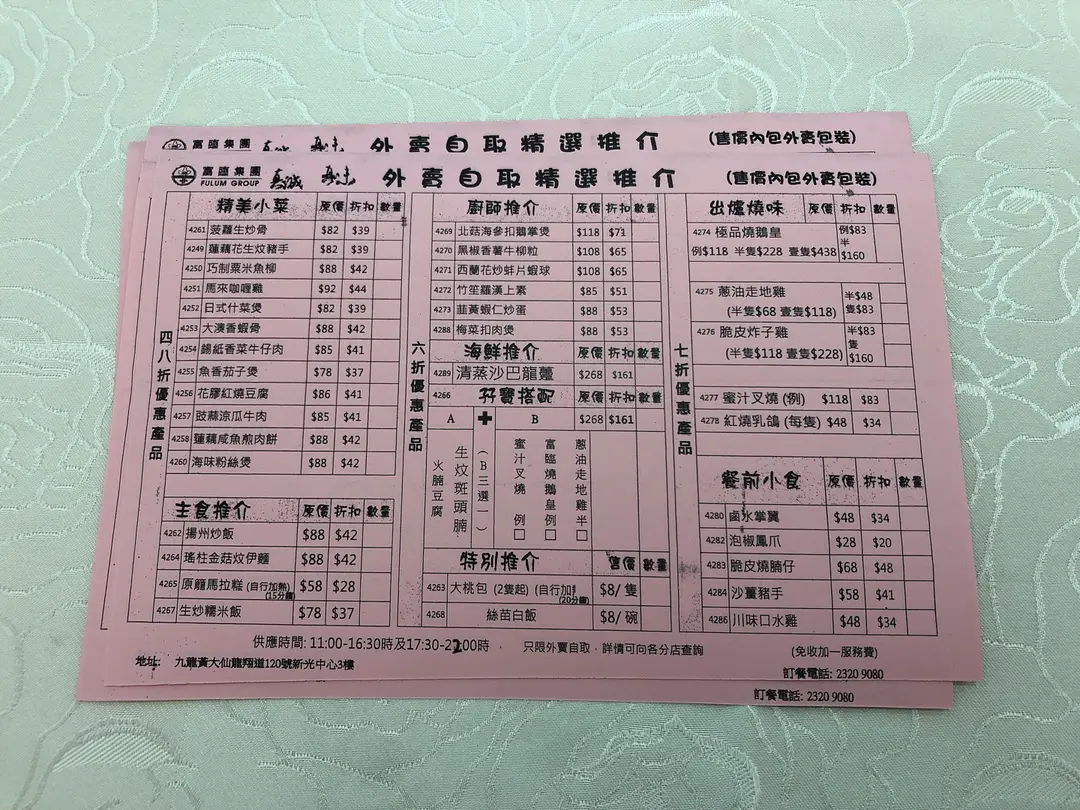 富臨集團 外賣自取精選推介 (售價內包外賣包裝)
富臨集團
FULUM GROUP
外賣自取精選推介 (售價內包外賣包裝)
四八折優惠產品
精美小菜 原價 折扣 數量
4261 菠蘿生炒骨 $82 $39
4249 蓮藕花生炆豬手 $82 $39
4250 巧制粟米魚柳 $88 $42
4251 馬來咖喱雞 $92 $44
4252 日式什菜煲 $82 $39
4253 大澳香蝦骨 $88 $42
4254 錫紙香菜牛仔肉 $85 $41
4255 魚香茄子煲 $78 $37
4256 花膠紅燒豆腐 $86 $41
4257 豉蒜涼瓜牛肉 $85 $41
4258 蓮藕咸魚煎肉餅 $88 $42
4260 海味粉絲煲 $88 $42
主食推介 原價 折扣 數量
4262 揚州炒飯 $88 $42
4264 瑤柱金菇炆伊麵 $88 $42
4265 原籠馬拉糕 (自行加熱) $58 $28
(15分鐘)
4267 生炒糯米飯 $78 $37
六折優惠產品
廚師推介 原價 折扣 數量
4269 北菇海參扣鵝掌煲 $118 $71
4270 黑椒香薯牛柳粒 $108 $65
4271 西蘭花炒蚌片蝦球 $108 $65
4272 竹笙羅漢上素 $85 $51
4273 韮黃蝦仁炒蛋 $88 $53
4288 梅菜扣肉煲 $88 $53
海鮮推介 原價 折扣 數量
4289 清蒸沙巴龍躉 $268 $161
4266 孖寶搭配 原價 折扣 數量
A + B $268 $161
火腩豆腐
生炆斑頭腩
(B三選一)
蜜汁叉燒 例□
富臨燒鵝皇例□
蔥油走地雞半□
特別推介 售價 數量
4263 大桃包 (2隻起) (自行加 $8/ 隻
(20分鐘)
4268 絲苗白飯 $8/ 碗
七折優惠產品
出爐燒味 原價 折扣 數量
4274 極品燒鵝皇 例$83
半
例$118 半隻$228 壹隻$438 $160
4275 蔥油走地雞 半$48
(半隻$68 壹隻$118) 隻$83
4276 脆皮炸子雞 半$83
隻
(半隻$118 壹隻$228) $160
4277 蜜汁叉燒 (例) $118 $83
4278 紅燒乳鴿 (每隻) $48 $34
餐前小食 原價 折扣 數量
4280 鹵水掌翼 $48 $34
4282 泡椒鳳爪 $28 $20
4283 脆皮燒腩仔 $68 $48
4284 沙薑豬手 $58 $41
4286 川味口水雞 $48 $34
供應時間: 11:00-16:30時及17:30-22:00時 , 只限外賣自取，詳情可向各分店查詢 (免收加一服務費)
地址: 九龍黃大仙龍翔道120號新光中心3樓
訂餐電話: 2320 9080
訂餐電話: 2320 9080